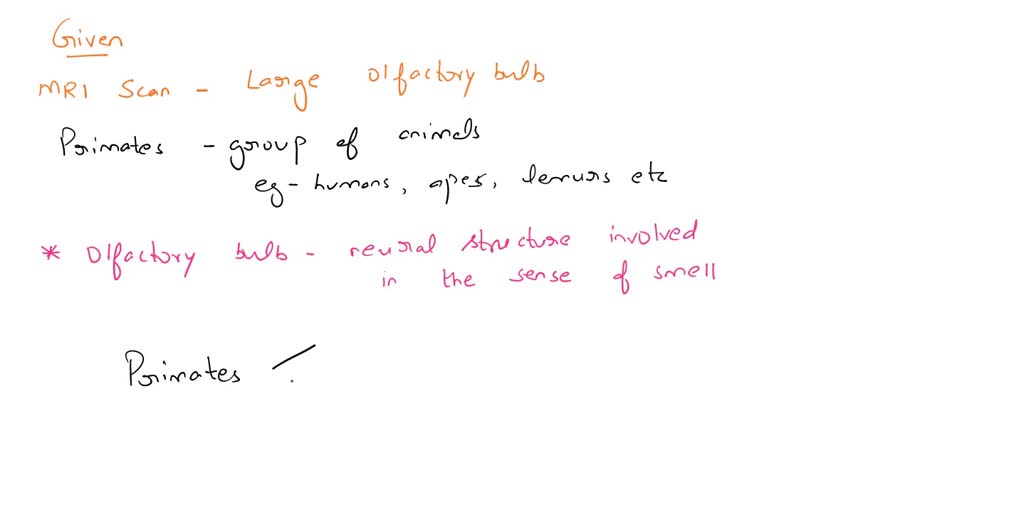 Given
MRI Scan - Large Olfactory bulb
Primates - group of animals
eg - humans, apes, lemurs etc
* Olfactory bulb - neural structure involved
in the sense of smell
Primates